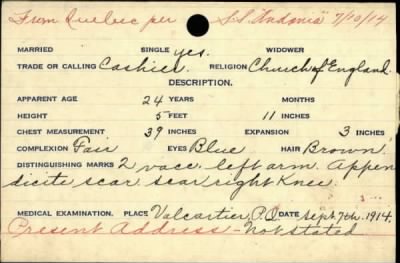 From Quebec per S.S. "Andania" 7/10/14
MARRIED SINGLE yes. WIDOWER
TRADE OR CALLING Cashier. RELIGION Church of England.
DESCRIPTION.
APPARENT AGE 24 YEARS MONTHS
HEIGHT 5 FEET 11 INCHES
CHEST MEASUREMENT 39 INCHES EXPANSION 3 INCHES
COMPLEXION Fair EYES Blue HAIR Brown.
DISTINGUISHING MARKS 2 vacc. left arm. Appen
dicite scar scar right Knee.
MEDICAL EXAMINATION. PLACE Valcartier, P.Q. DATE Sept. 7th. 1914.
Present Address - Not stated